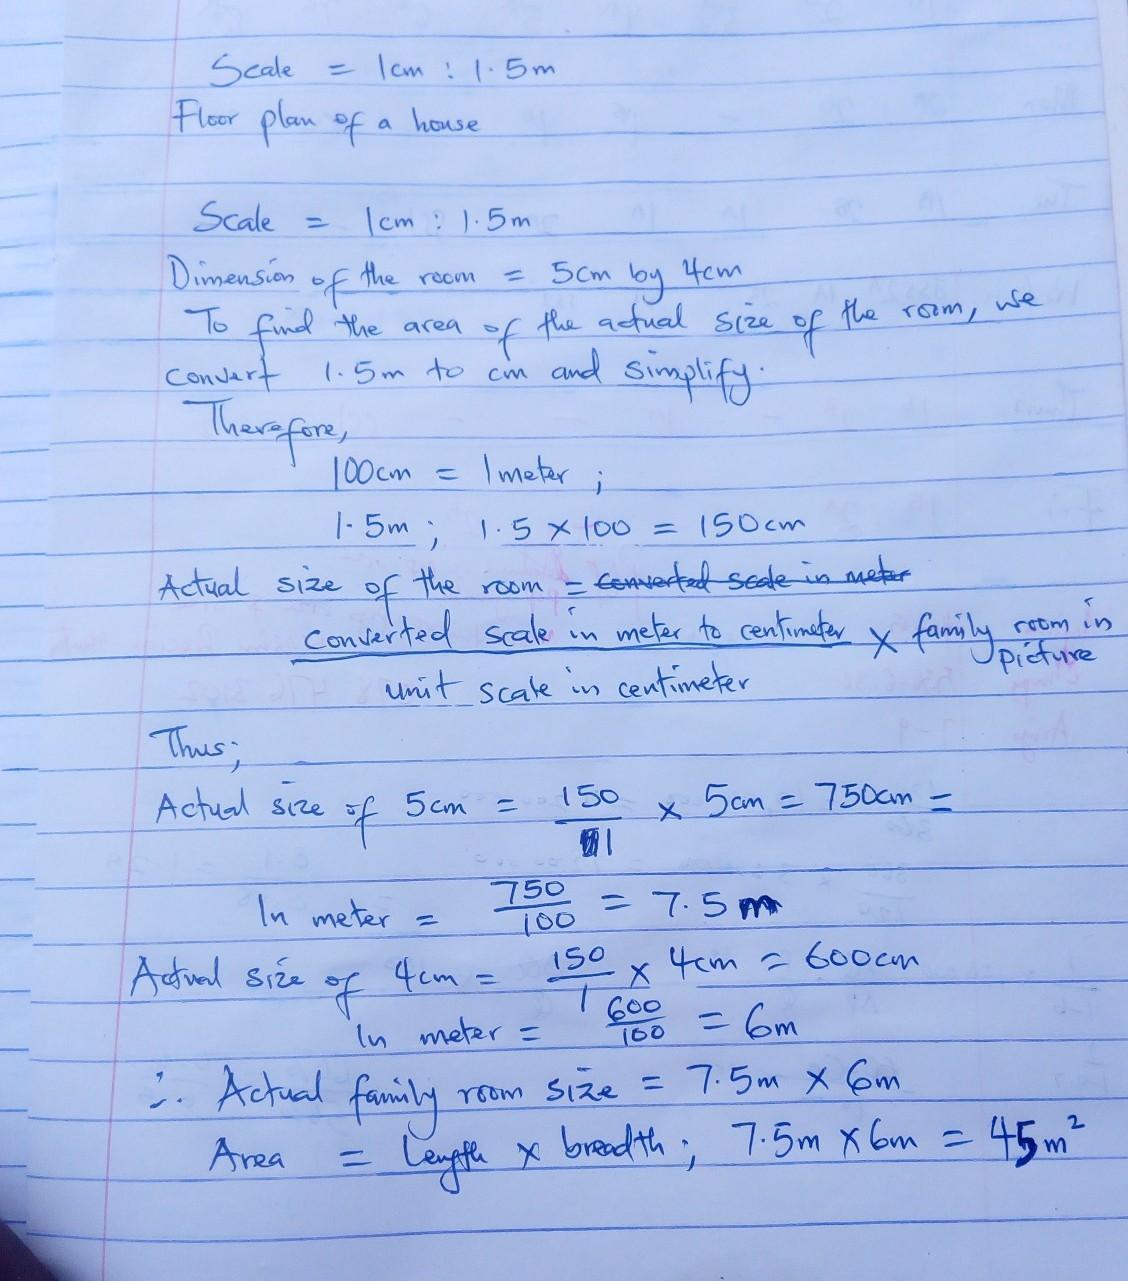 Scale = 1cm : 1.5m
Floor plan of a house
Scale = 1cm : 1.5m
Dimension of the room = 5cm by 4cm
To find the area of the actual size of the room, we
convert 1.5m to cm and simplify.
Therefore,
100cm = 1 meter ;
1.5m ; 1.5 × 100 = 150cm
Actual size of the room = converted scale in meter
converted scale in meter to centimeter × family room in picture
unit scale in centimeter
Thus;
Actual size of 5cm = 150/1 × 5cm = 750cm =
In meter = 750/100 = 7.5m
Actual size of 4cm = 150/1 × 4cm = 600cm
In meter = 600/100 = 6m
∴ Actual family room size = 7.5m × 6m
Area = Length × breadth ; 7.5m × 6m = 45m²